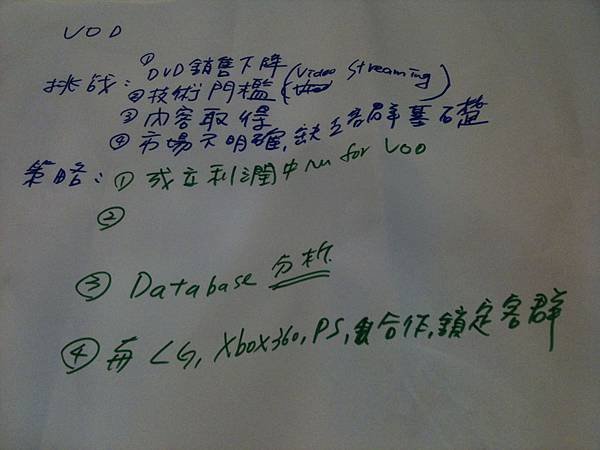 VOD
① DVD 銷售下降
挑战: ② 技術門檻 (Video Streaming)
③ 內容取得
④ 市場不明確, 缺乏客群基礎
策略: ① 成立利潤中心 for VOD
②
③ Database 分析
④ 與 LG, Xbox360, PS, 合作, 鎖定客群